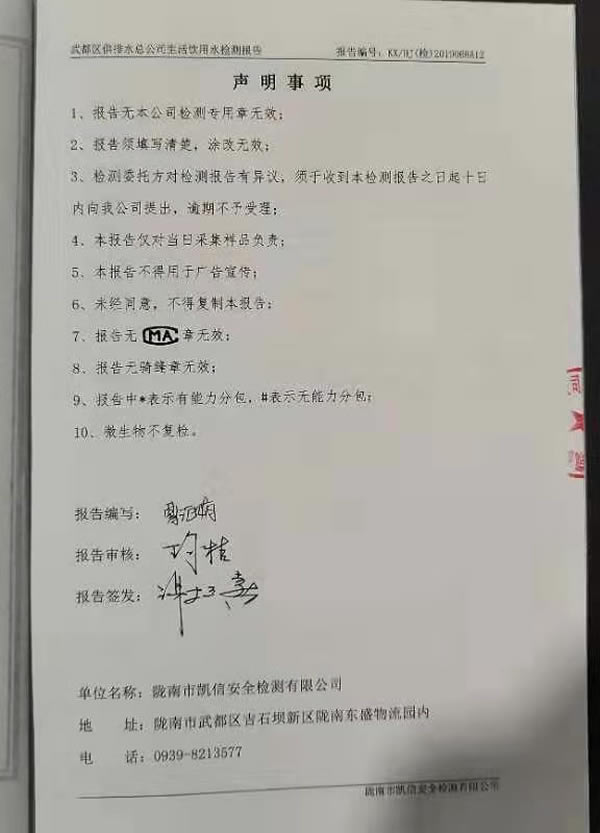 武都区供排水总公司生活饮用水检测报告 报告编号: KX/HJ(检)2019068A12
声明事项
1、报告无本公司检测专用章无效;
2、报告须填写清楚,涂改无效;
3、检测委托方对检测报告有异议,须于收到本检测报告之日起十日
内向我公司提出,逾期不予受理;
4、本报告仅对当日采集样品负责;
5、本报告不得用于广告宣传;
6、未经同意,不得复制本报告;
7、报告无MA章无效;
8、报告无骑缝章无效;
9、报告中*表示有能力分包,#表示无能力分包;
10、微生物不复检。
报告编写:
报告审核:
报告签发:
单位名称: 陇南市凯信安全检测有限公司
地 址: 陇南市武都区吉石坝新区陇南东盛物流园内
电 话: 0939-8213577
陇南市凯信安全检测有限公司